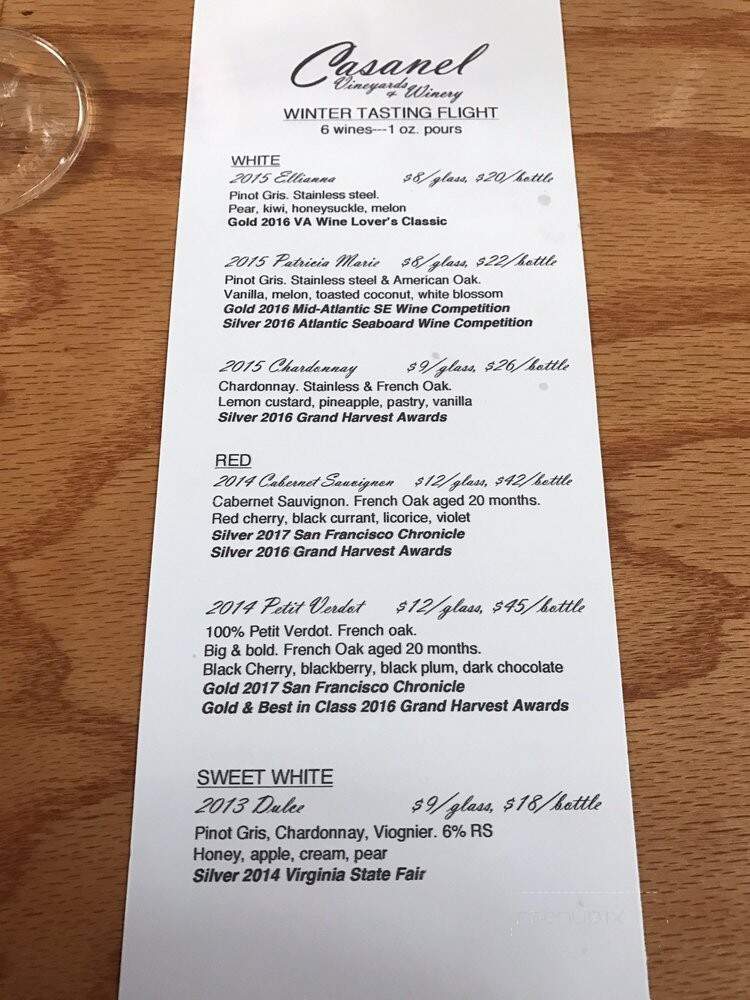 Casanel
Vineyards
& Winery
WINTER TASTING FLIGHT
6 wines---1 oz. pours
WHITE
2015 Ellianna $8/glass, $20/bottle
Pinot Gris. Stainless steel.
Pear, kiwi, honeysuckle, melon
Gold 2016 VA Wine Lover's Classic
2015 Patricia Marie $8/glass, $22/bottle
Pinot Gris. Stainless steel & American Oak.
Vanilla, melon, toasted coconut, white blossom
Gold 2016 Mid-Atlantic SE Wine Competition
Silver 2016 Atlantic Seaboard Wine Competition
2015 Chardonnay $9/glass, $26/bottle
Chardonnay. Stainless & French Oak.
Lemon custard, pineapple, pastry, vanilla
Silver 2016 Grand Harvest Awards
RED
2014 Cabernet Sauvignon $12/glass, $42/bottle
Cabernet Sauvignon. French Oak aged 20 months.
Red cherry, black currant, licorice, violet
Silver 2017 San Francisco Chronicle
Silver 2016 Grand Harvest Awards
2014 Petit Verdot $12/glass, $45/bottle
100% Petit Verdot. French oak.
Big & bold. French Oak aged 20 months.
Black Cherry, blackberry, black plum, dark chocolate
Gold 2017 San Francisco Chronicle
Gold & Best in Class 2016 Grand Harvest Awards
SWEET WHITE
2013 Dulce $9/glass, $18/bottle
Pinot Gris, Chardonnay, Viognier. 6% RS
Honey, apple, cream, pear
Silver 2014 Virginia State Fair